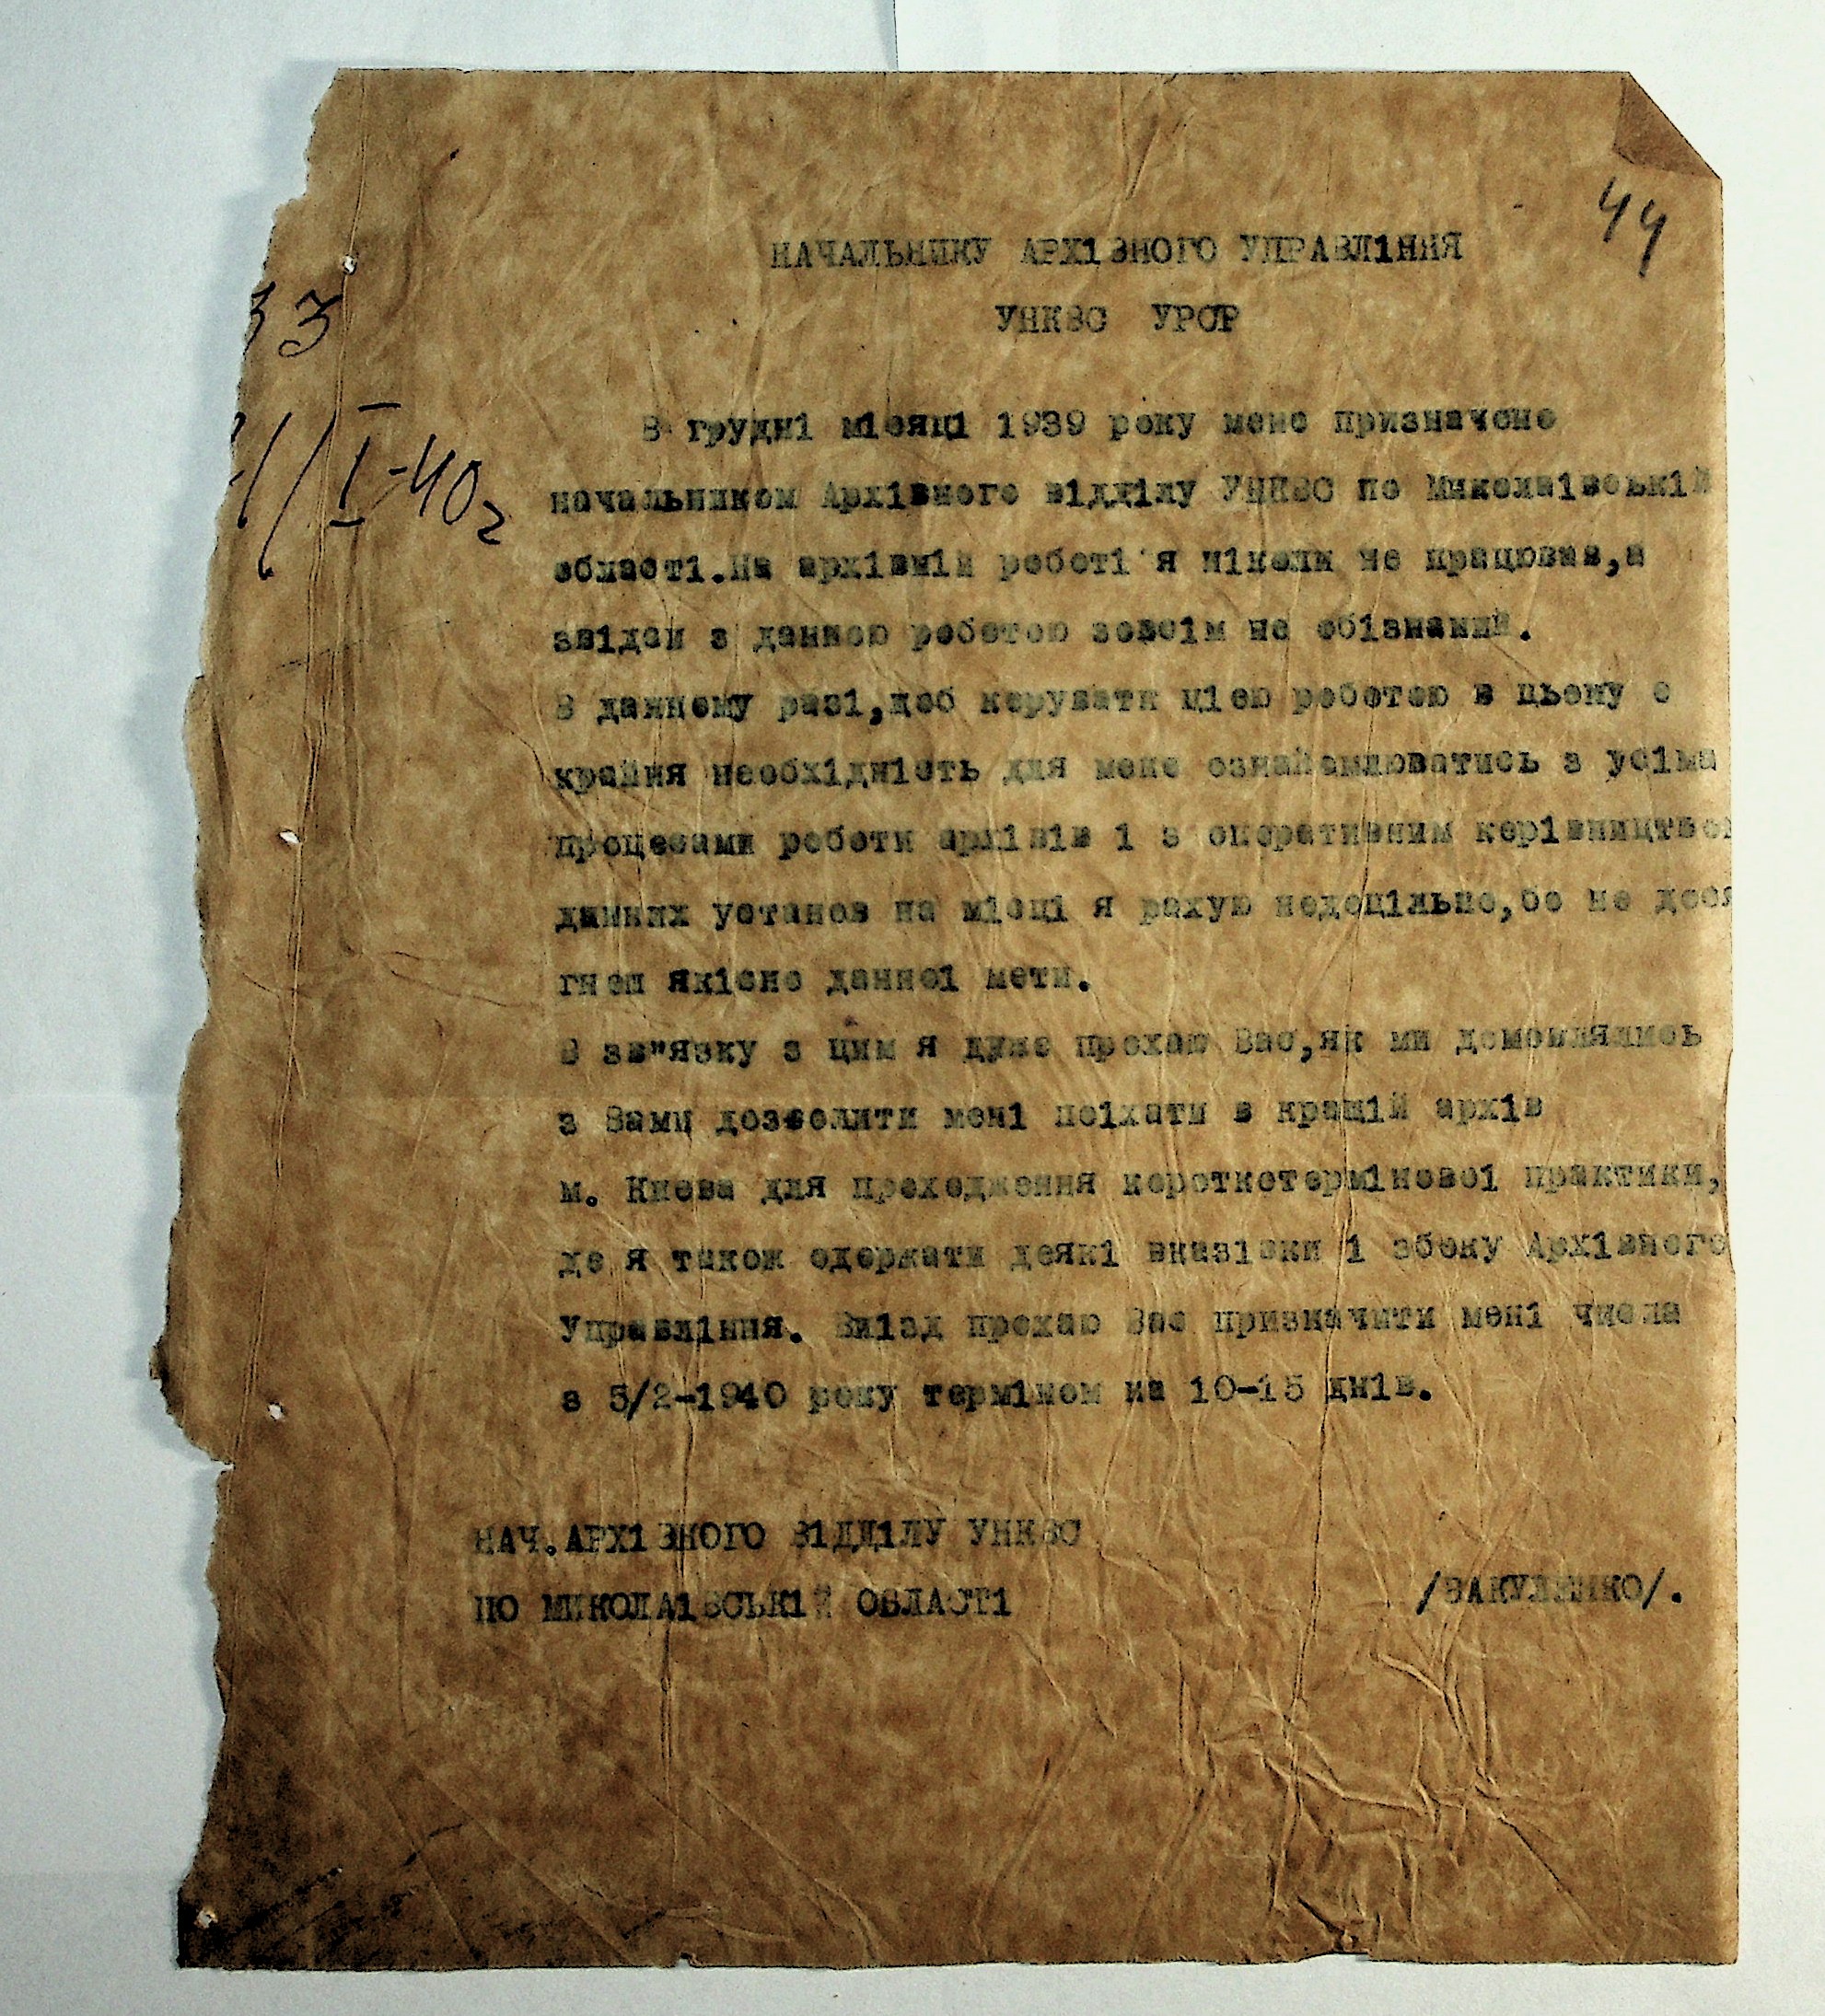 44
НАЧАЛЬНИКУ АРХІВНОГО УПРАВЛІННЯ
УНКВС УРСР
33
I-40г
В грудні місяці 1939 року мене призначено
начальником Архівного відділу УНКВС по Миколаівській
області.На архівній роботі я ніколи не працював,а
звідси з данною роботою зовсім не обізнаний.
В данному разі,щоб керувати цією роботою в цьому є
крайня необхідність для мене ознайомлюватись з усіма
процесами роботи архівів і з оперативним керівництвом
данних установ на місці я рахую недоцільно,бо не дося
гнеш якісно данної мети.
В зв"язку з цим я дуже прохаю Вас,як ми домовлялись
з Вами дозволити мені поїхати в кращій архів
м. Києва для проходження короткотермінової практики,
де я також одержати деякі вказівки і збоку Архівного
Управління. Виїзд прохаю Вас призначити мені числа
з 5/2-1940 року терміном на 10-15 днів.
НАЧ.АРХІВНОГО ВІДДІЛУ УНКВС
ПО МИКОЛАІВСЬКІЙ ОБЛАСТІ
/ВАКУЛЕНКО/.